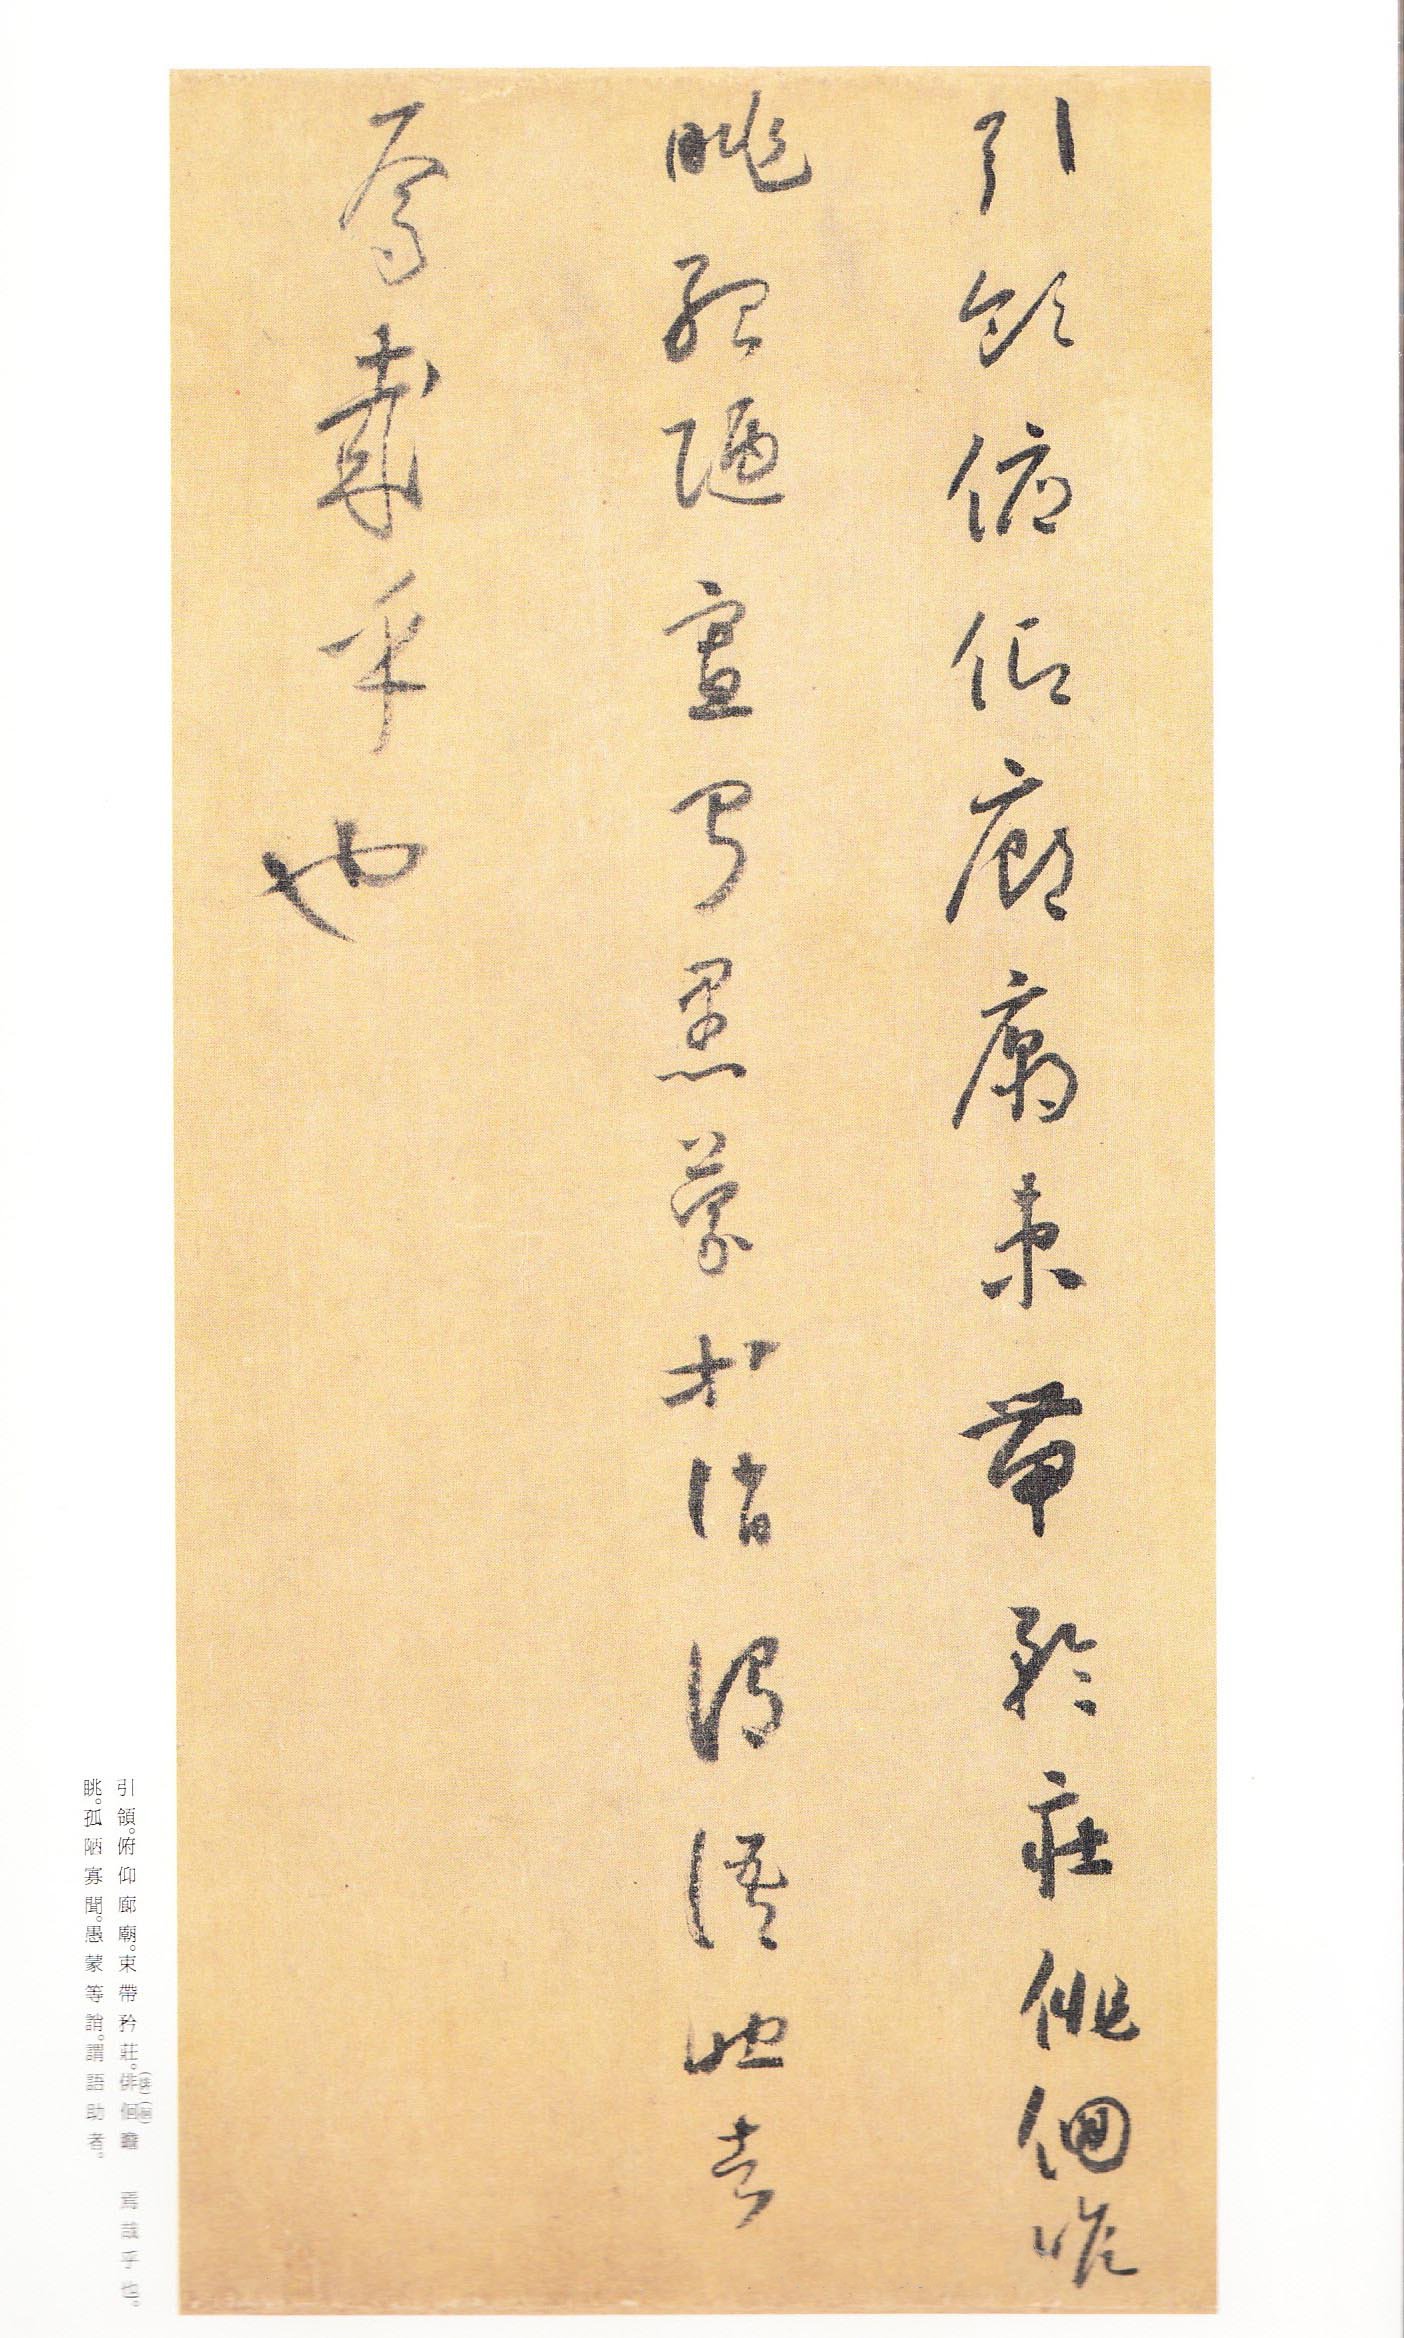 引領俯仰廊廟束帶矜莊俳佪瞻
眺孤陋寡聞愚蒙等誚謂語助者
焉哉乎也
引領。俯仰廊廟。束帶矜莊。俳佪瞻
眺。孤陋寡聞。愚蒙等誚。謂語助者。
焉哉乎也。